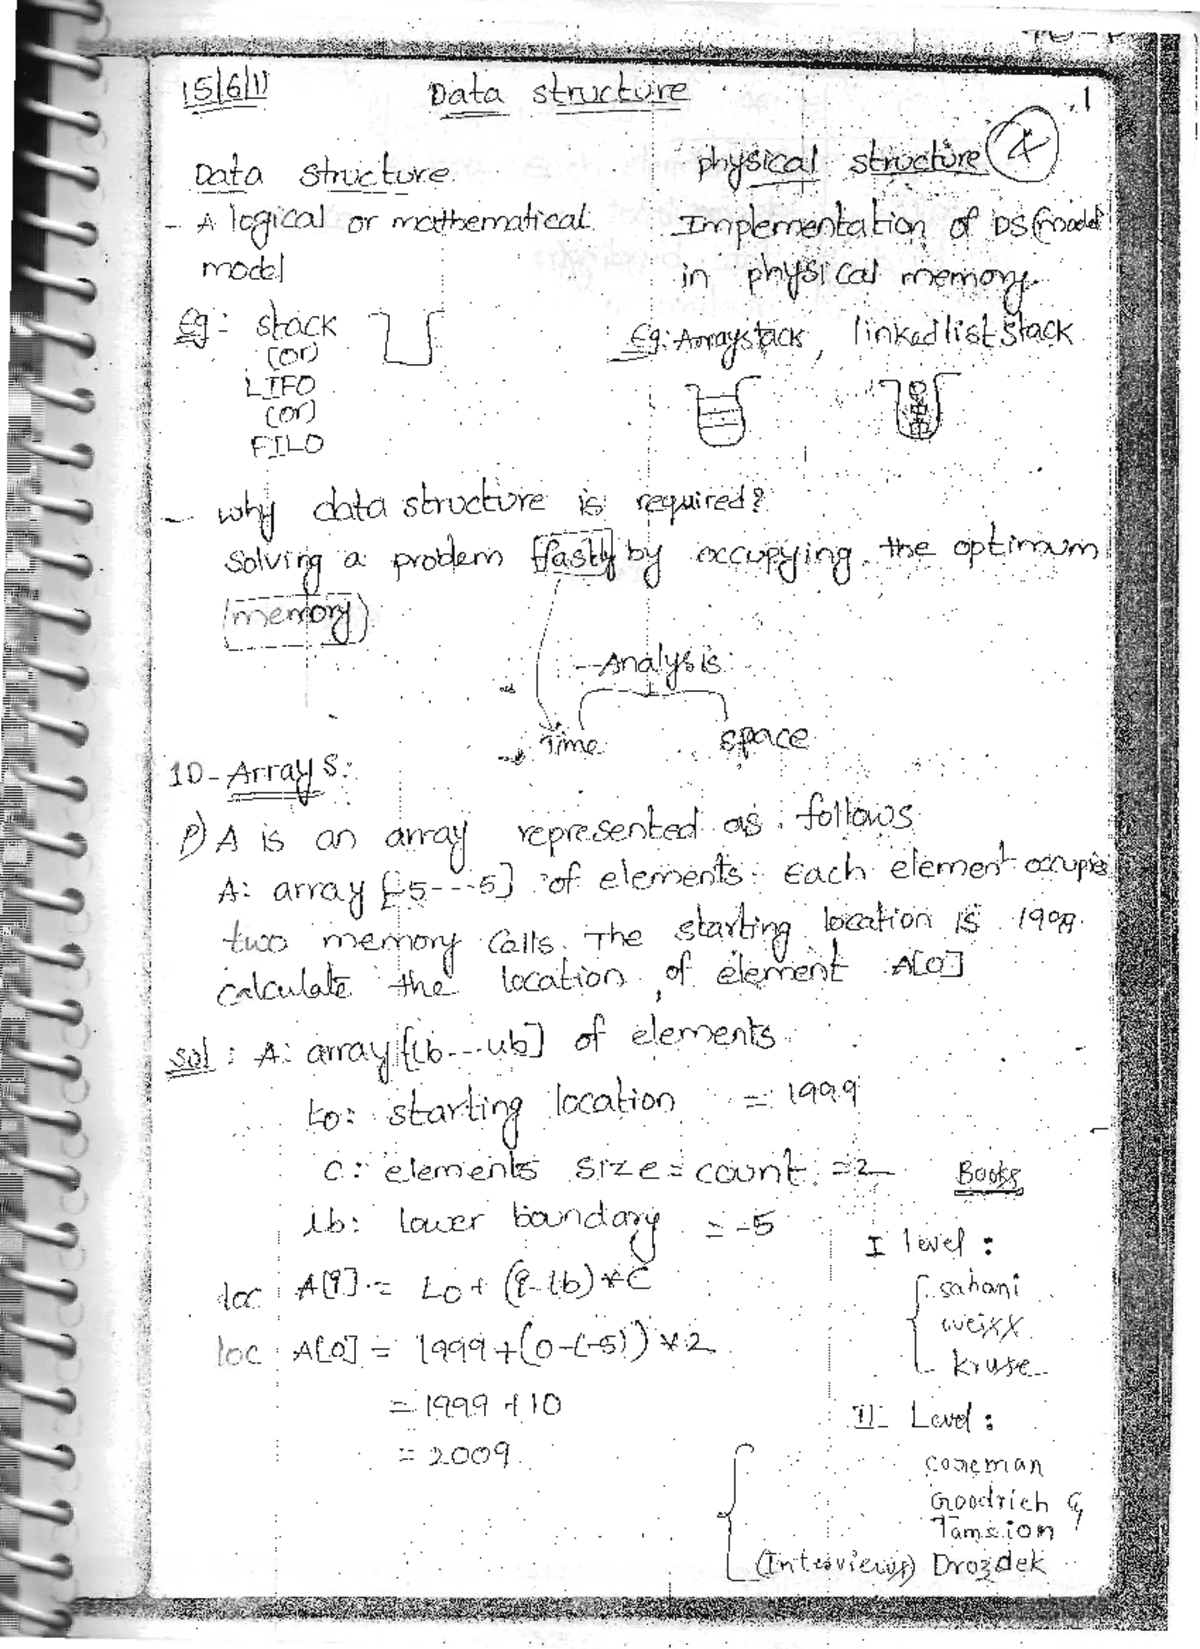 15/6/11
Data structure
1
4
Data structure
- A logical or mathematical
model
Eg: stack
(or)
LIFO
(or)
FILO
physical structure
Implementation of DS(model
in physical memory.
Eg: Arraystack, linkedlist stack
- why data structure is required?
solving a problem fastly by occupying the optimum
memory
Analysis
Time space
1D-Arrays:
P) A is an array represented as follows
A: array [-5---5] of elements. Each element occupies
two memory calls. The starting location is 1999.
calculate the location of element A[0]
sol: A: array [lb---ub] of elements
Lo: starting location = 1999
C: elements size = count = 2
lb: lower boundary = -5
loc A[i] = Lo + (i-lb)*C
loc A[0] = 1999+(0-(-5))*2
= 1999 + 10
= 2009
Books
I level:
sahani
weixx
kruse
II Level:
coreman
Goodrich &
Tamsion
(Interviews) Drozdek